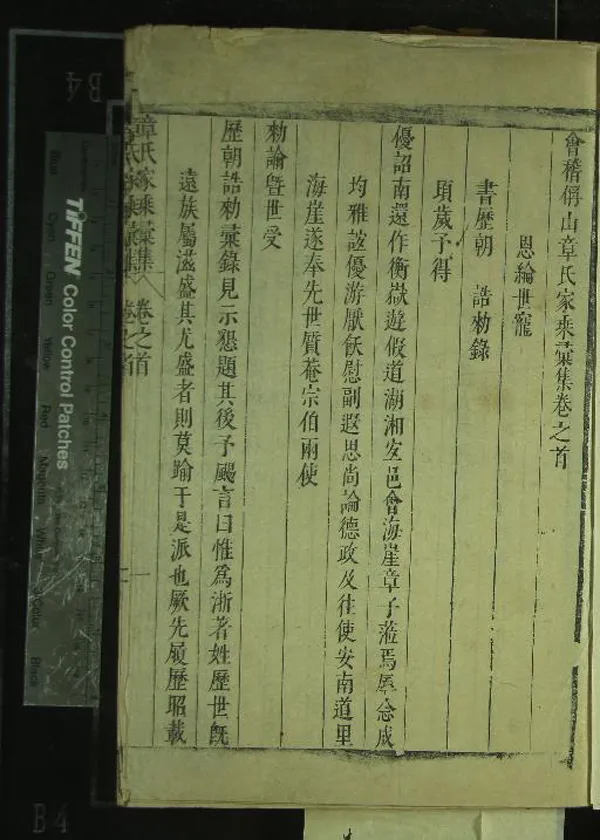 會稽偁山章氏家乘彙集卷之首
恩綸世寵
書歷朝 誥勑錄
頃歲予得
優詔南還作衡嶽遊假道湖湘安邑會海崖章子蒞焉舉念成
均雅誼優游厭飫慰副遐思尚論德政及往使安南道里
海崖遂奉先世質菴宗伯兩使
勑諭曁世受
歷朝誥勑彙錄見示懇題其後予颺言曰惟爲浙著姓歷世旣
遠族屬滋盛其尤盛者則莫踰于是派也厥先履歷昭載
章氏家乘彙集 卷之首
一
TIFFEN Color Control Patches
Blue
Cyan
Green
Yellow
Red
Magenta
White
3/Color
Black
B4
B4